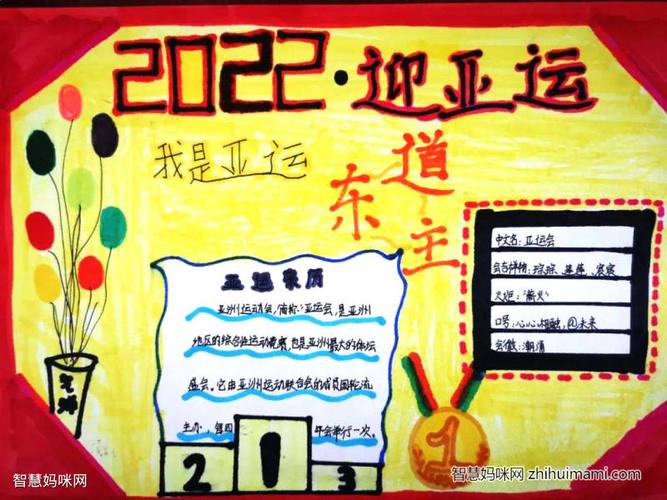 2022·迎亚运
我是亚运
东道主
中文名:亚运会
会吉祥物:琮琮、莲莲、宸宸
火炬:"薪火"
口号:心心相融,@未来
会徽:潮涌
亚运来历
亚洲运动会,简称:亚运会,是亚洲
地区的综合性运动竞赛,也是亚洲最大的体坛
盛会。它由亚洲运动联合会的成员国轮流
主办,每四年会举行一次。
2 1 3
1
智慧妈咪网
智慧妈咪网 zhihuimami.com